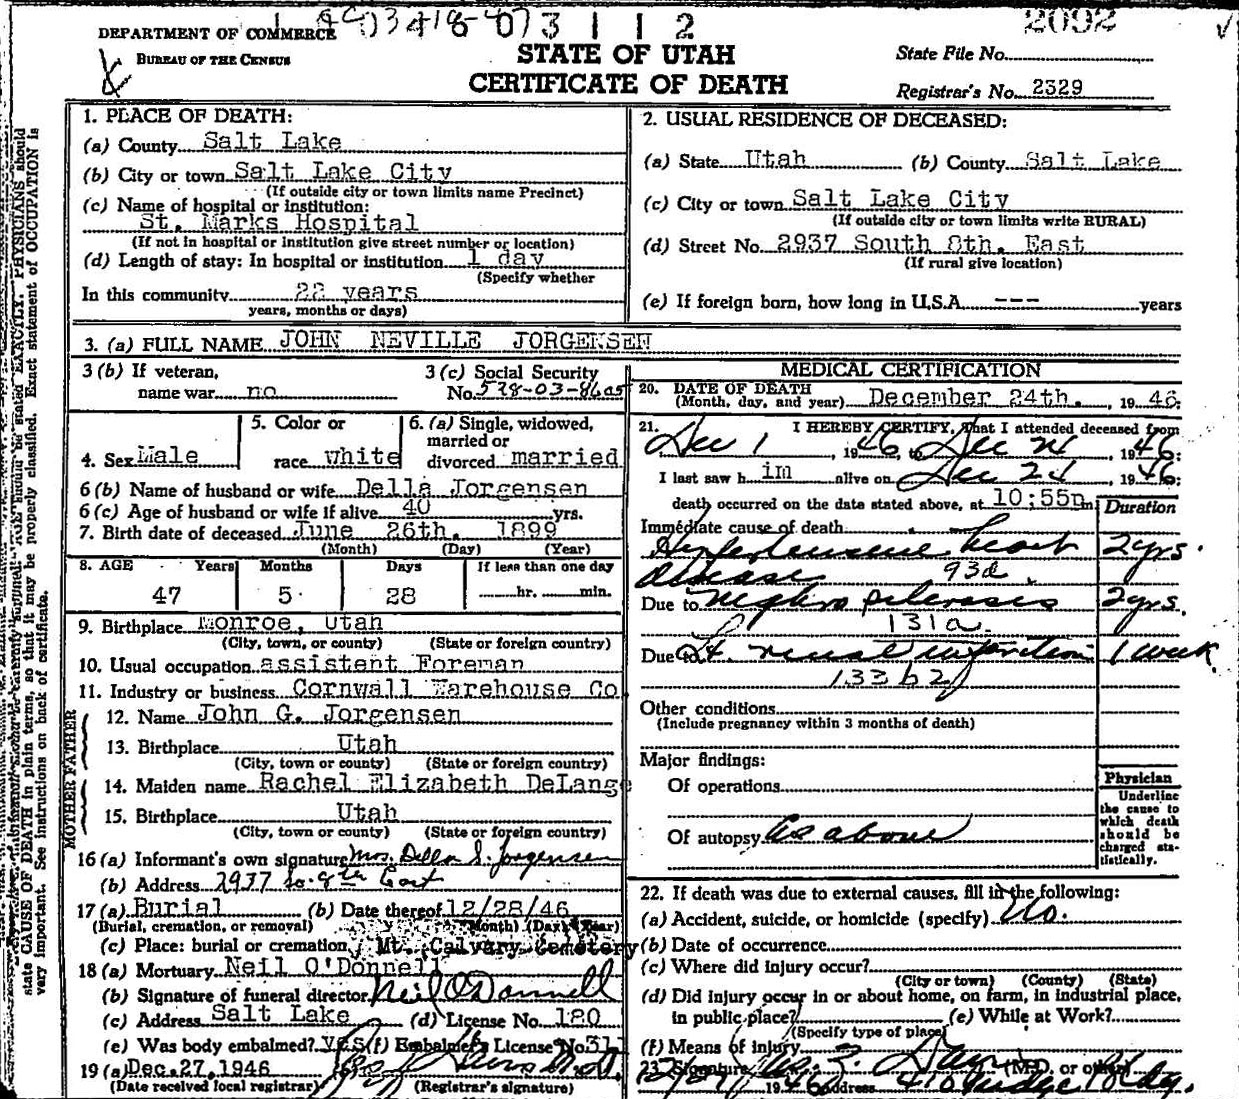 2092
DEPARTMENT OF COMMERCE
BUREAU OF THE CENSUS
STATE OF UTAH
CERTIFICATE OF DEATH
State File No.
Registrar's No. 2329
1. PLACE OF DEATH:
(a) County Salt Lake
(b) City or town Salt Lake City
(If outside city or town limits name Precinct)
(c) Name of hospital or institution:
St. Marks Hospital
(If not in hospital or institution give street number or location)
(d) Length of stay: In hospital or institution 1 day
(Specify whether
In this community 22 years
years, months or days)
2. USUAL RESIDENCE OF DECEASED:
(a) State Utah (b) County Salt Lake
(c) City or town Salt Lake City
(If outside city or town limits write RURAL)
(d) Street No. 2937 South 8th. East
(If rural give location)
(e) If foreign born, how long in U.S.A. --- years
3. (a) FULL NAME JOHN NEVILLE JORGENSEN
3 (b) If veteran,
name war no
3 (c) Social Security
No. 528-03-8605
4. Sex Male
5. Color or
race white
6. (a) Single, widowed,
married or
divorced married
6 (b) Name of husband or wife Della Jorgensen
6 (c) Age of husband or wife if alive 40 yrs.
7. Birth date of deceased June 26th. 1899
(Month) (Day) (Year)
8. AGE Years Months Days If less than one day
47 5 28 hr. min.
9. Birthplace Monroe, Utah
(City, town, or county) (State or foreign country)
10. Usual occupation assistent Foreman
11. Industry or business Cornwall Warehouse Co
FATHER
12. Name John G. Jorgensen
13. Birthplace Utah
(City, town or county) (State or foreign country)
MOTHER
14. Maiden name Rachel Elizabeth DeLange
15. Birthplace Utah
(City, town or county) (State or foreign country)
16 (a) Informant's own signature Mrs. Della S. Jorgensen
(b) Address 2937 So. 8th East
17 (a) Burial (b) Date thereof 12/28/46
(Burial, cremation, or removal) (Month) (Day) (Year)
(c) Place: burial or cremation Mt. Calvary Cemetery
18 (a) Mortuary Neil O'Donnell
(b) Signature of funeral director Neil O'Donnell
(c) Address Salt Lake (d) License No. 180
(e) Was body embalmed? yes (f) Embalmer's License No. 311
19 (a) Dec. 27, 1946
(Date received local registrar) (Registrar's signature)
MEDICAL CERTIFICATION
20. DATE OF DEATH
(Month, day, and year) December 24th. , 19 46;
21. I HEREBY CERTIFY, That I attended deceased from
Dec 1 , 19 46, to Dec 24 , 19 46;
I last saw h im alive on Dec 24 , 19 46;
death occurred on the date stated above, at 10:55 m. Duration
Immediate cause of death
Hypertensive heart 2 yrs.
disease 93d
Due to Nephro sclerosis 2 yrs.
131a.
Due to Lt. renal infarction 1 week
133b2
Other conditions
(Include pregnancy within 3 months of death)
Major findings:
Of operations
Of autopsy As above
Physician
Underline
the cause to
which death
should be
charged sta-
tistically.
22. If death was due to external causes, fill in the following:
(a) Accident, suicide, or homicide (specify) No.
(b) Date of occurrence
(c) Where did injury occur?
(City or town) (County) (State)
(d) Did injury occur in or about home, on farm, in industrial place,
in public place? (e) While at Work?
(Specify type of place)
(f) Means of injury
23. Signature (M.D. or other)
19 46 Address 410 Judge Bldg.
state CAUSE OF DEATH in plain terms, so that it may be properly classified. Exact statement of OCCUPATION is
very important. See instructions on back of certificate.